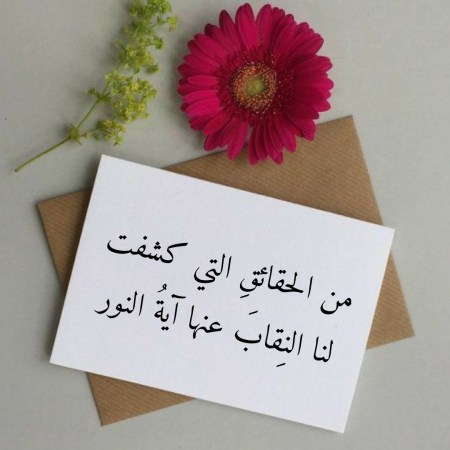 من الحقائقِ التي كشفت
لنا النِقابَ عنها آيةُ النور